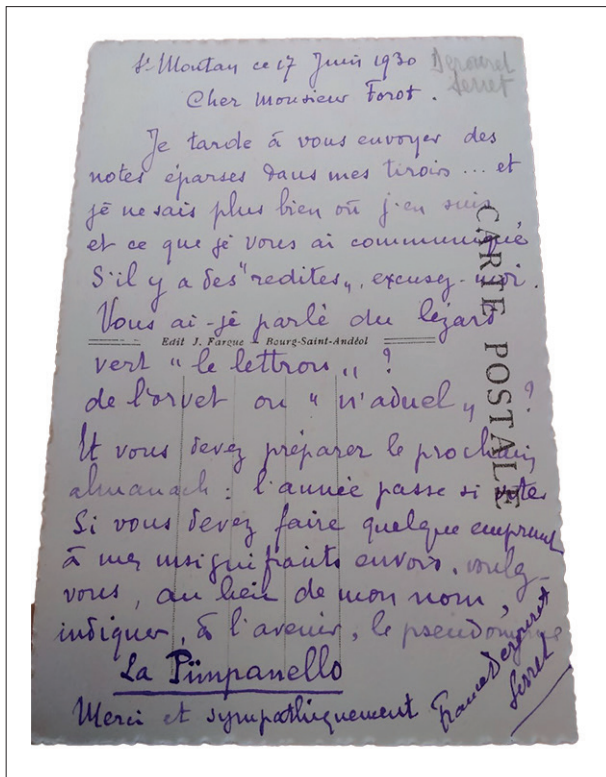 St Montan ce 17 Juin 1930
Derouret
Serret
Cher Monsieur Forot.
Je tarde à vous envoyer des
notes éparses dans mes tiroirs ... et
je ne sais plus bien où j'en suis
et ce que je vous ai communiqué
S'il y a des "redites", excusez-moi.
Vous ai-je parlé du lézard
Edit J. Fargue - Bourg-Saint-Andéol
vert "le lettrou" ?
de l'orvet ou "n'aduel" ?
Et vous devez préparer le prochain
almanach : l'année passe si vite
Si vous devez faire quelque emprunt
à mes insignifiants envois, voulez-
vous, au lieu de mon nom,
indiquer, à l'avenir, le pseudonyme
La Pimpanello
Merci et sympathiquement
France Derouret
Serret
CARTE POSTALE